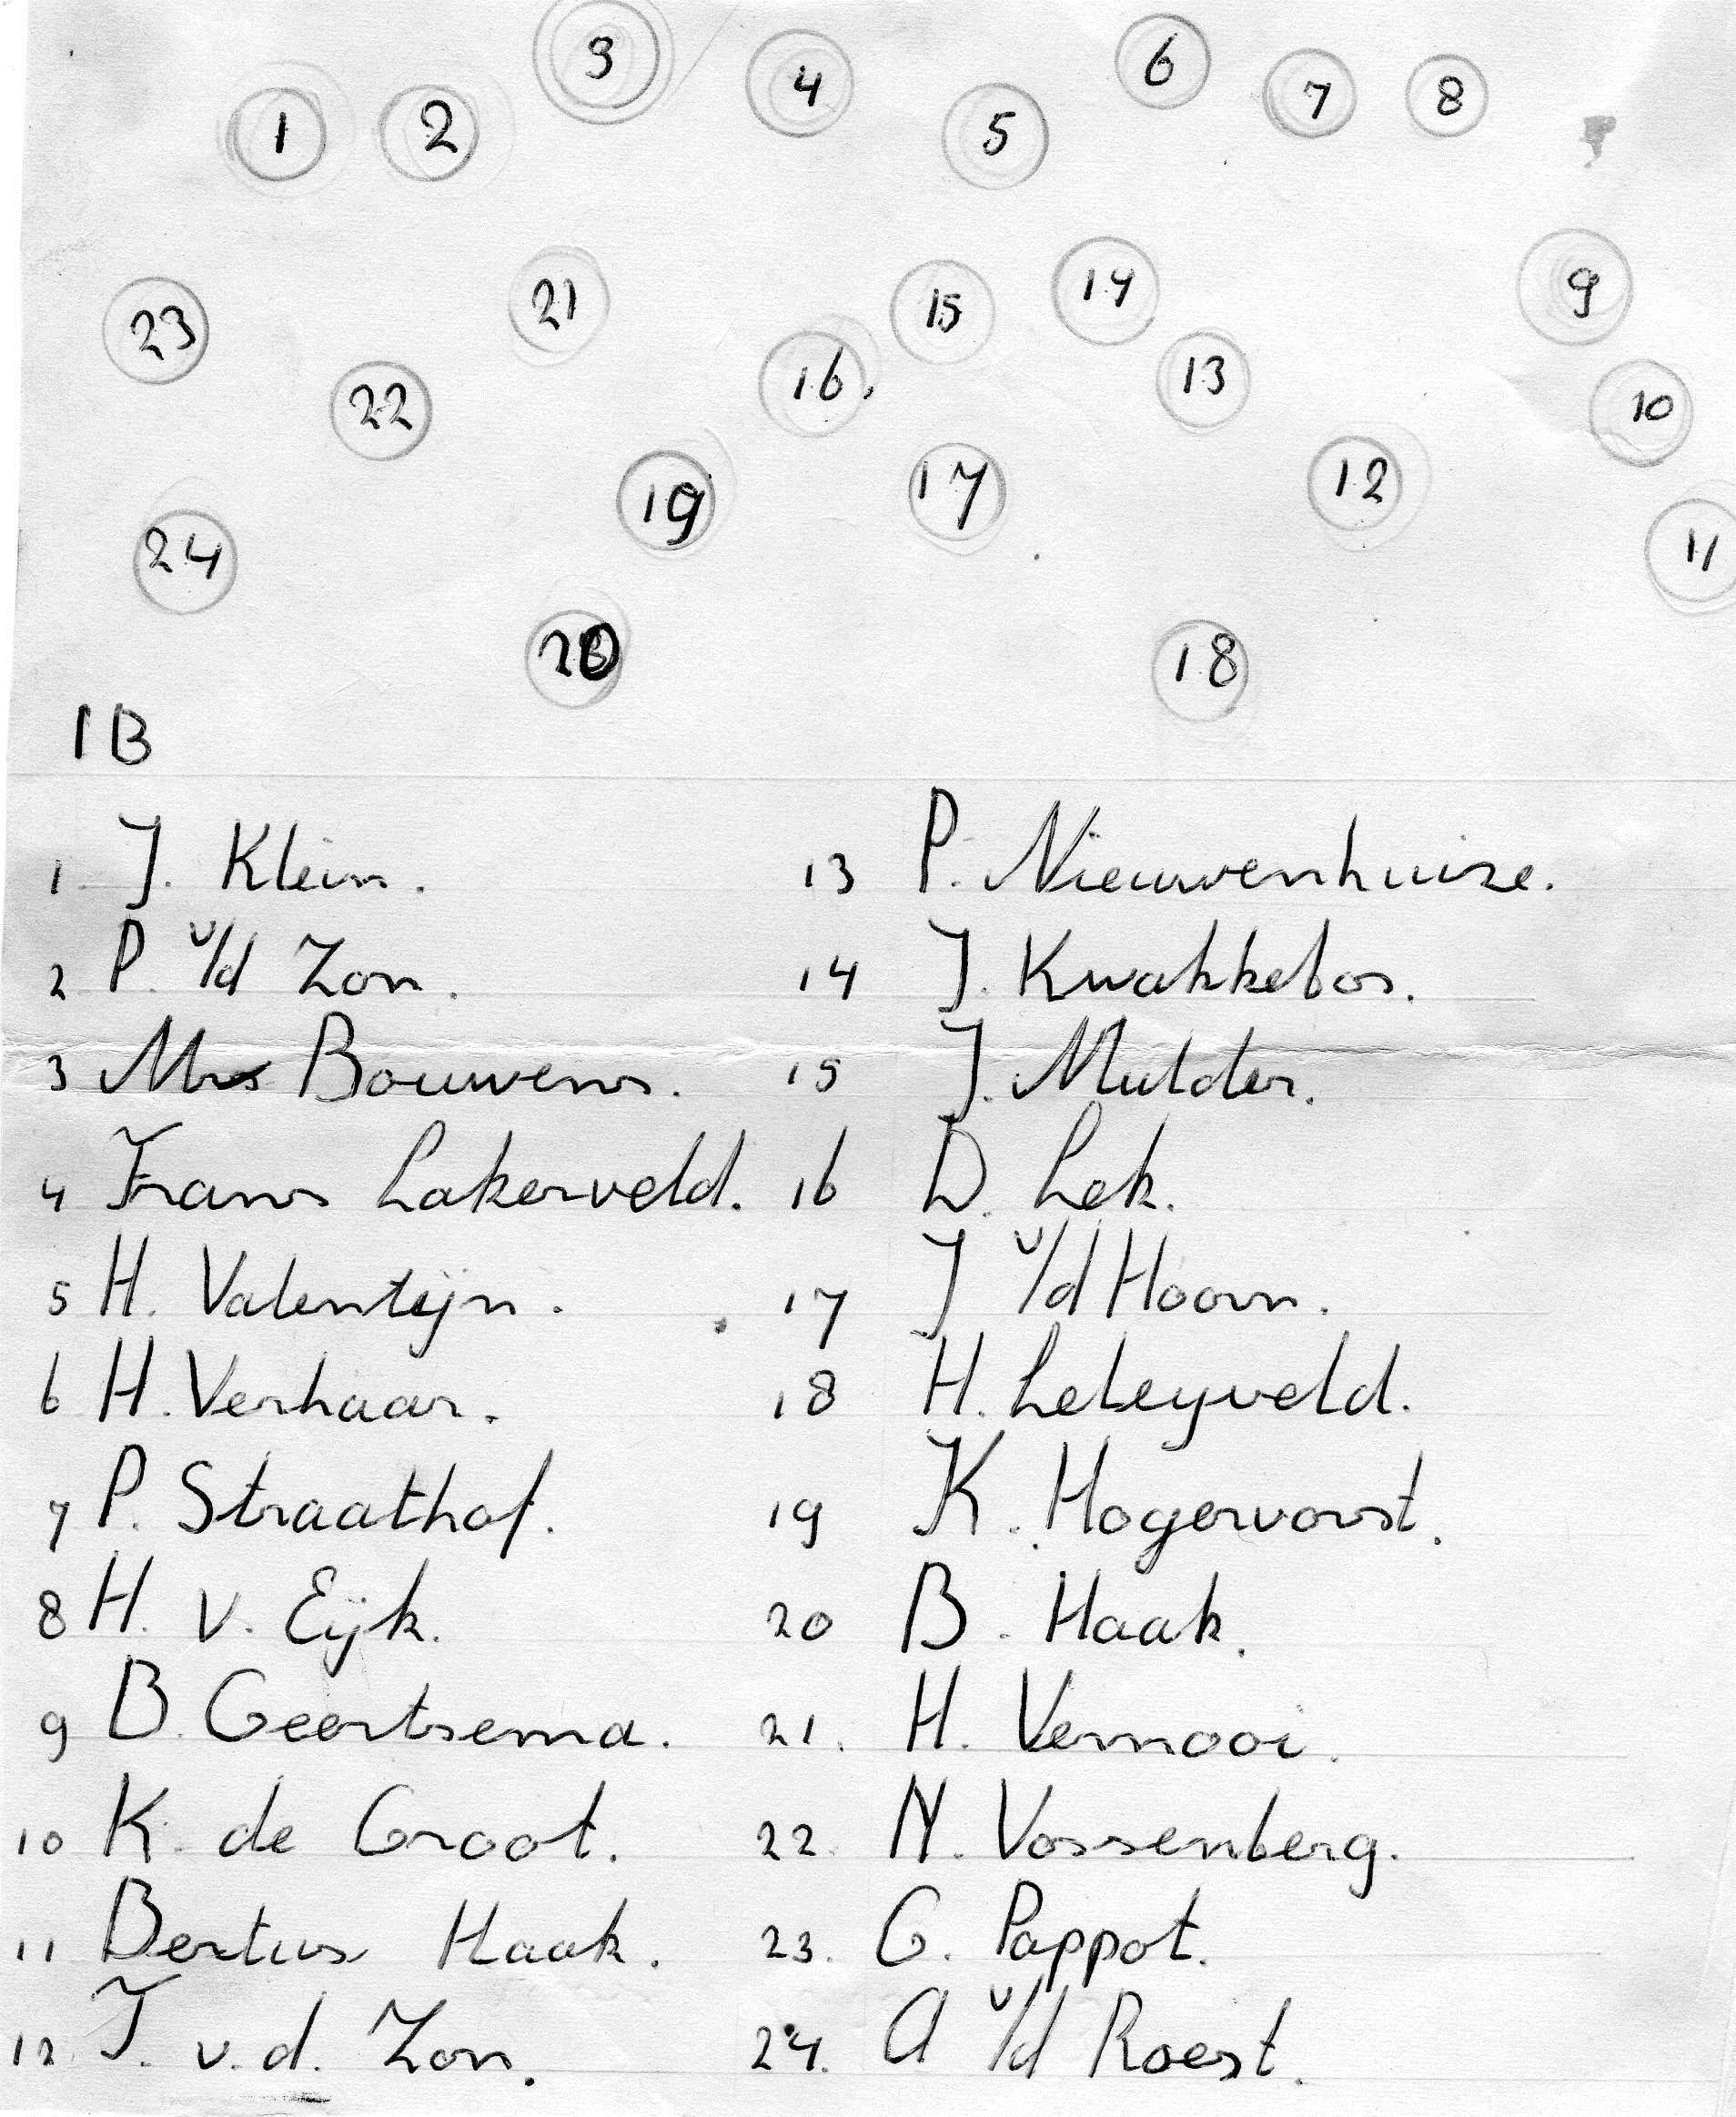 3
6
4
7
8
1
2
5
9
21
14
15
23
13
16.
10
22
12
17
19
11
24
20
18
1B
1. J. Klein. 13 P. Nieuwenhuize.
2 P. v/d Zon. 14 J. Kwakkebos.
3 Mrs Bouwens. 15 J. Mulder.
4 Frans Lakerveld. 16 D. Lek.
5 H. Valentijn. 17 J v/d Hoorn.
6 H. Verhaar. 18 H. Leleyveld.
7 P. Straathof. 19 K. Hogervorst.
8 H. v. Eijk. 20 B. Haak.
9 B. Geertsema. 21. H. Vernooi.
10 K. de Groot. 22. N. Vossenberg.
11 Bertus Haak. 23. G. Pappot.
12. T. v.d. Zon. 24. A v/d Roest.